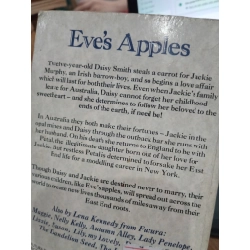 Eve's Apples
Twelve-year-old Daisy Smith steals a carrot for Jackie
Murphy, an Irish barrow-boy, and so begins a love affair
which will last for both their lives. Even when Jackie's family
leave for Australia, Daisy cannot forget her childhood
sweetheart – and she determines to follow her beloved to the
ends of the earth, if need be!
In Australia they both make their fortunes – Jackie in the
opal mines and Daisy through the outback bar she runs with
her husband. On his death she returns to England to be with
Petal, the illegitimate daughter born out of her love for
Jackie, but restless Petals determined to forsake the East
End life for a modelling career in New York.
Though Daisy and Jackie are destined never to marry, their
various children, like Eve's apples, will spread out across the
world to make new lives thousands of miles away from their
East End roots.
Also by Lena Kennedy from Futura:
Maggie, Nelly Kelly, Autumn Alley, Lady Penelope,
Lizzie, Susan, Lily, my Lovely,
The Dandelion Seed, The